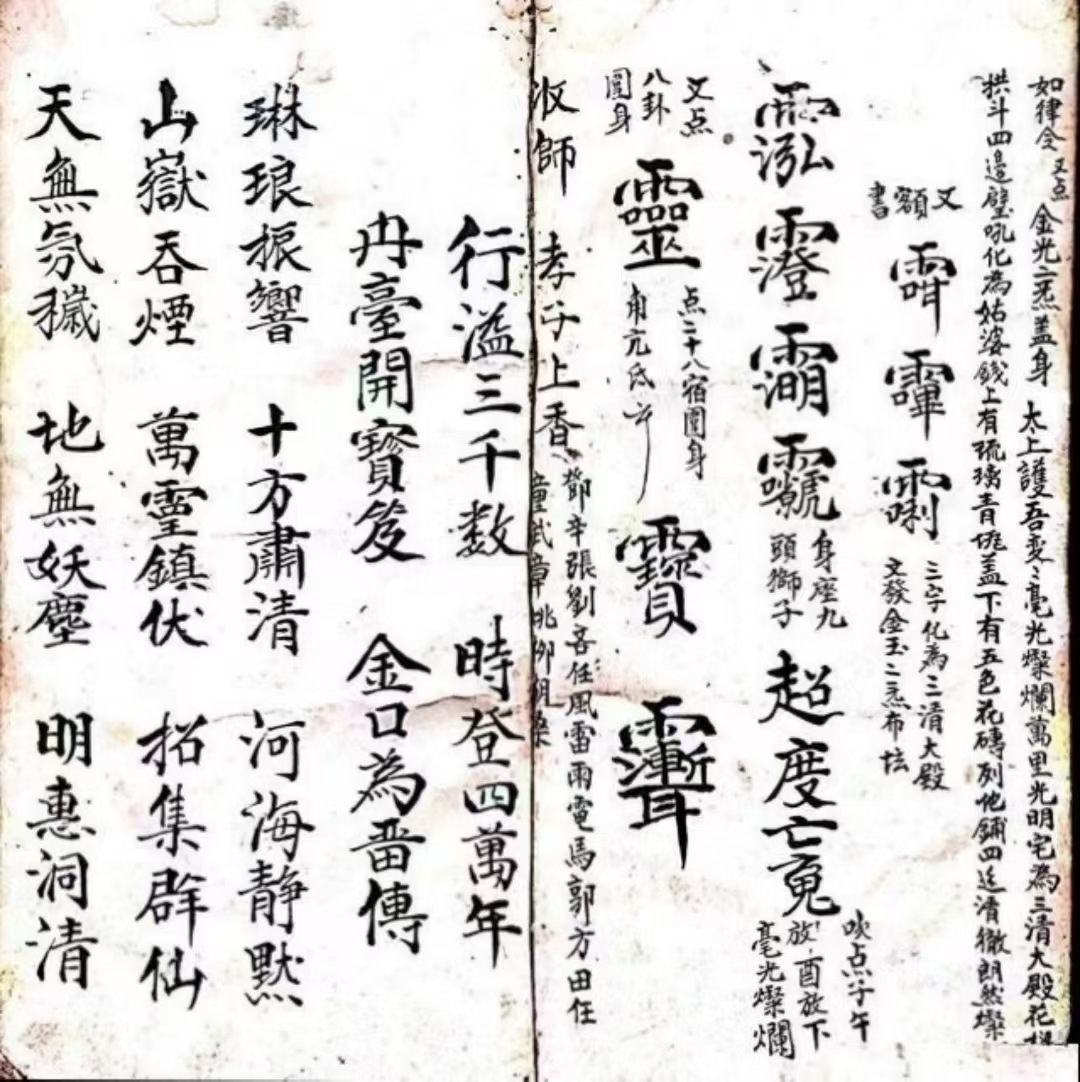 如律令 又点 金光二炁盖身 太上護吾変〻毫光燦爛萬里光明宅為三清大殿花
拱斗四邉壁吼化為姑婆錢上有琉璃青垗盖下有五色花磚列他鋪四廷清徹朗然燦
又額書
三字化為三清大殿
文發金玉二炁布坛
身座九
頭獅子
超度亡䰟
吙点子午
放酉放下
毫光燦爛
又点
八卦
圍身
靈
点二十八宿圍身
角亢氐
寶
收師 孝子上香
鄧辛張劉 任風雷雨電馬郭方田任
行溢三千数 時登四萬年
冊臺開寶笈 金口為啚傳
琳琅振響 十方肅清 河海静默
山嶽吞煙 萬霊鎮伏 招集群仙
天無氛穢 地無妖塵 明惠洞清